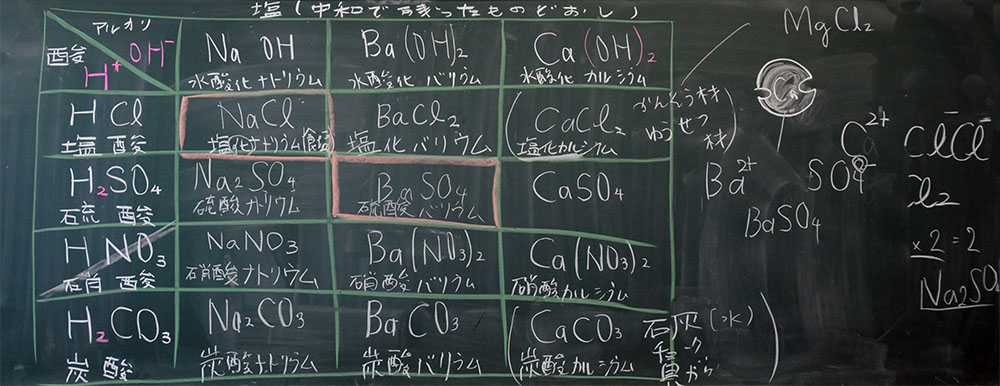 塩(中和で残ったものどおし)
アルカリ OH⁻
酸 H⁺
NaOH
水酸化ナトリウム
Ba(OH)₂
水酸化バリウム
Ca(OH)₂
水酸化カルシウム
HCl
塩酸
NaCl
塩化ナトリウム(食塩)
BaCl₂
塩化バリウム
(CaCl₂
塩化カルシウム
かんそう材
ゆうせつ材)
H₂SO₄
硫酸
Na₂SO₄
硫酸ナトリウム
BaSO₄
硫酸バリウム
CaSO₄
HNO₃
硝酸
NaNO₃
硝酸ナトリウム
Ba(NO₃)₂
硝酸バリウム
Ca(NO₃)₂
硝酸カルシウム
H₂CO₃
炭酸
Na₂CO₃
炭酸ナトリウム
BaCO₃
炭酸バリウム
(CaCO₃
炭酸カルシウム
石灰(水)
貝がら)
MgCl₂
Ca
Ba²⁺
BaSO₄
×2=2